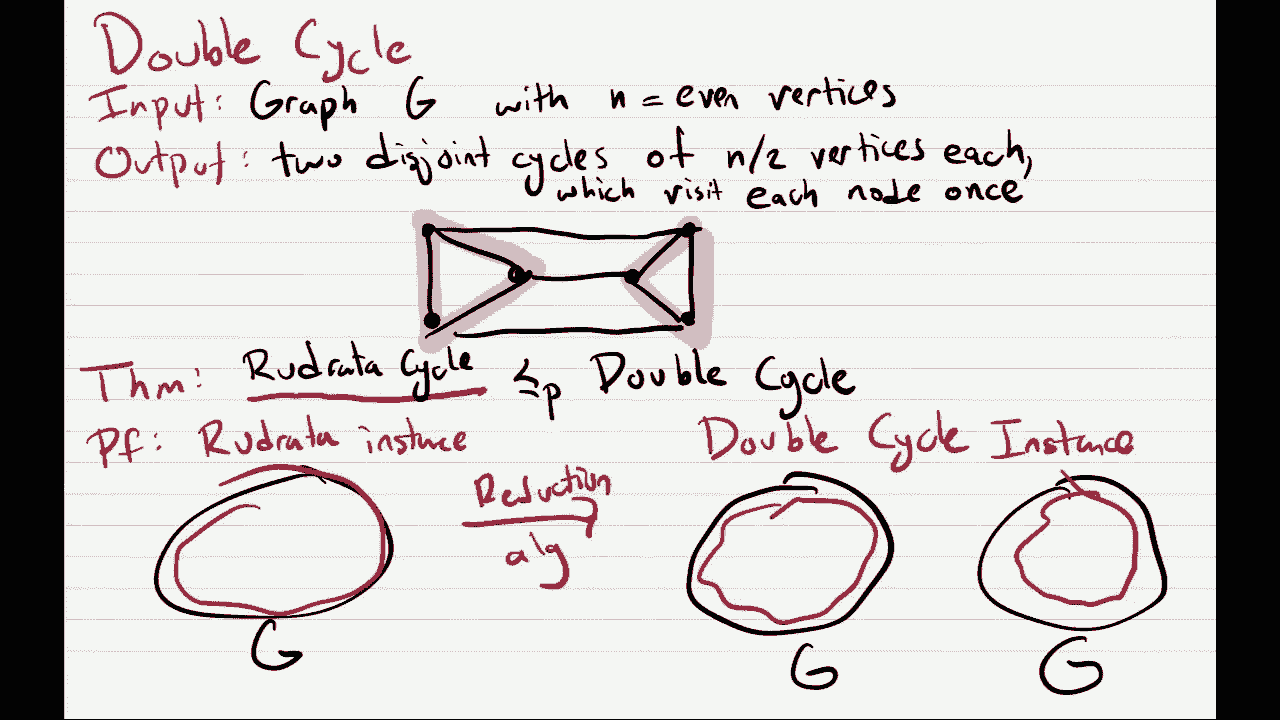 Double Cycle
Input: Graph G with n = even vertices
Output: two disjoint cycles of n/2 vertices each,
which visit each node once
Thm: Rudrata Cycle ≤p Double Cycle
Pf: Rudrata instace
Double Cycle Instance
Reduction
alg
G
G
G